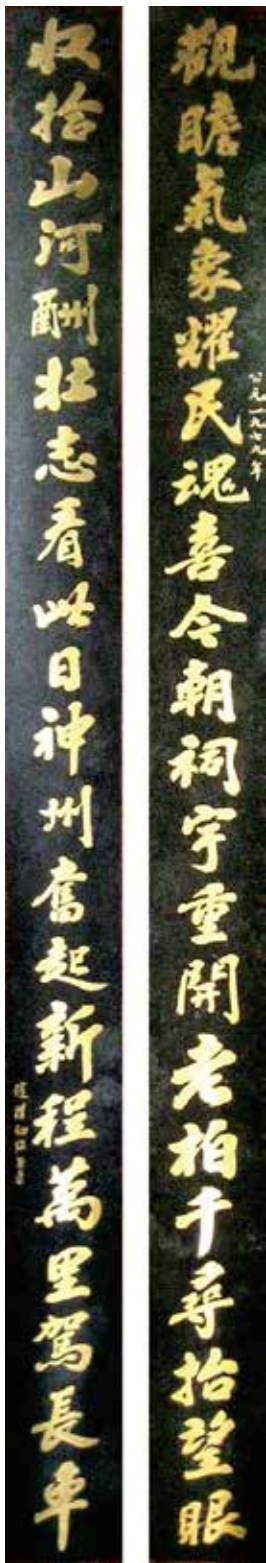 觀瞻氣象耀民魂喜今朝祠宇重開老柏千尋抬望眼
公元一九七九年
收拾山河酬壯志看此日神州奮起新程萬里駕長車
趙樸初